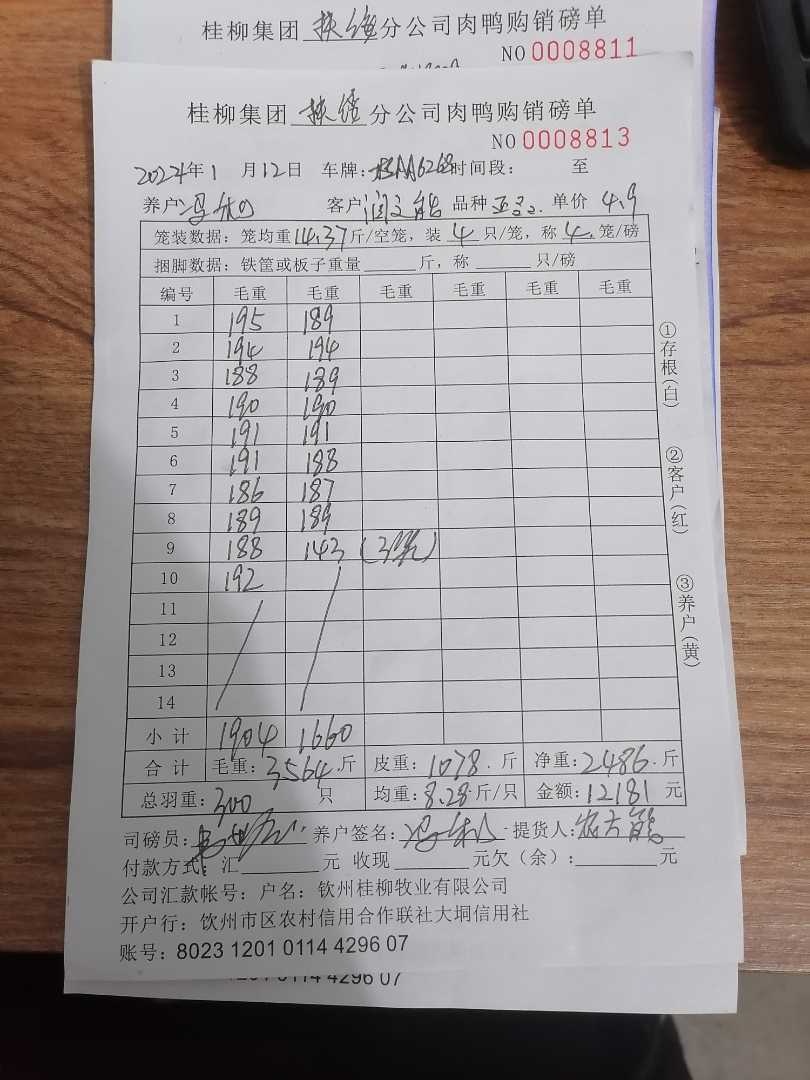 桂柳集团 扶绥 分公司肉鸭购销磅单
NO 0008811
桂柳集团 扶绥 分公司肉鸭购销磅单
NO 0008813
2024年1月12日 车牌: 时间段: 至
养户: 客户: 品种 单价 4.9
笼装数据: 笼均重14.37斤/空笼, 装 4 只/笼, 称 4 笼/磅
捆脚数据: 铁筐或板子重量______斤, 称______只/磅
编号 毛重 毛重 毛重 毛重 毛重 毛重
1 195 189
2 194 194
3 188 189
4 190 190
5 191 191
6 191 188
7 186 187
8 189 189
9 188 143 (3笼)
10 192
11
12
13
14
小计 1904 1660
合计 毛重: 3564.斤 皮重: 1078.斤 净重: 2486.斤
总羽重: 300 只 均重: 8.28斤/只 金额: 12181 元
司磅员: 养户签名: 提货人:
付款方式: 汇______元 收现______元欠(余):______元
公司汇款帐号: 户名: 钦州桂柳牧业有限公司
开户行: 钦州市区农村信用合作联社大垌信用社
账号: 8023 1201 0114 4296 07
①存根(白)
②客户(红)
③养户(黄)
0114 4296 07